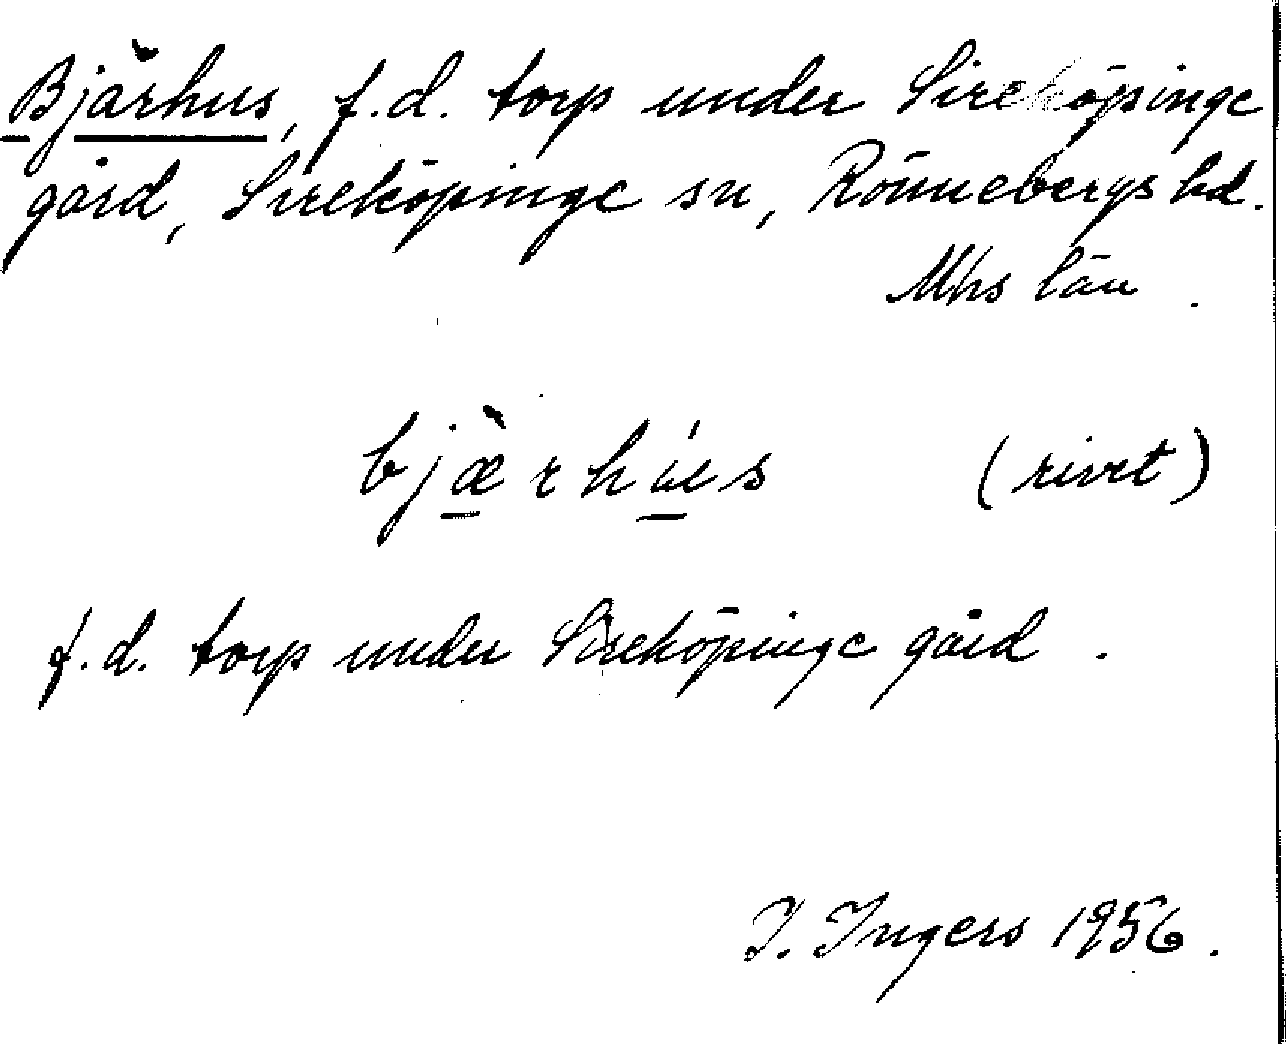 Bjärhus, f.d. torp under Sireköpinge
gård, Sireköpinge sn, Rönnebergs hd.
Mhs län.
bjæ̀rhúus (rivet)
f.d. torp under Sireköpinge gård.
I. Ingers 1956.